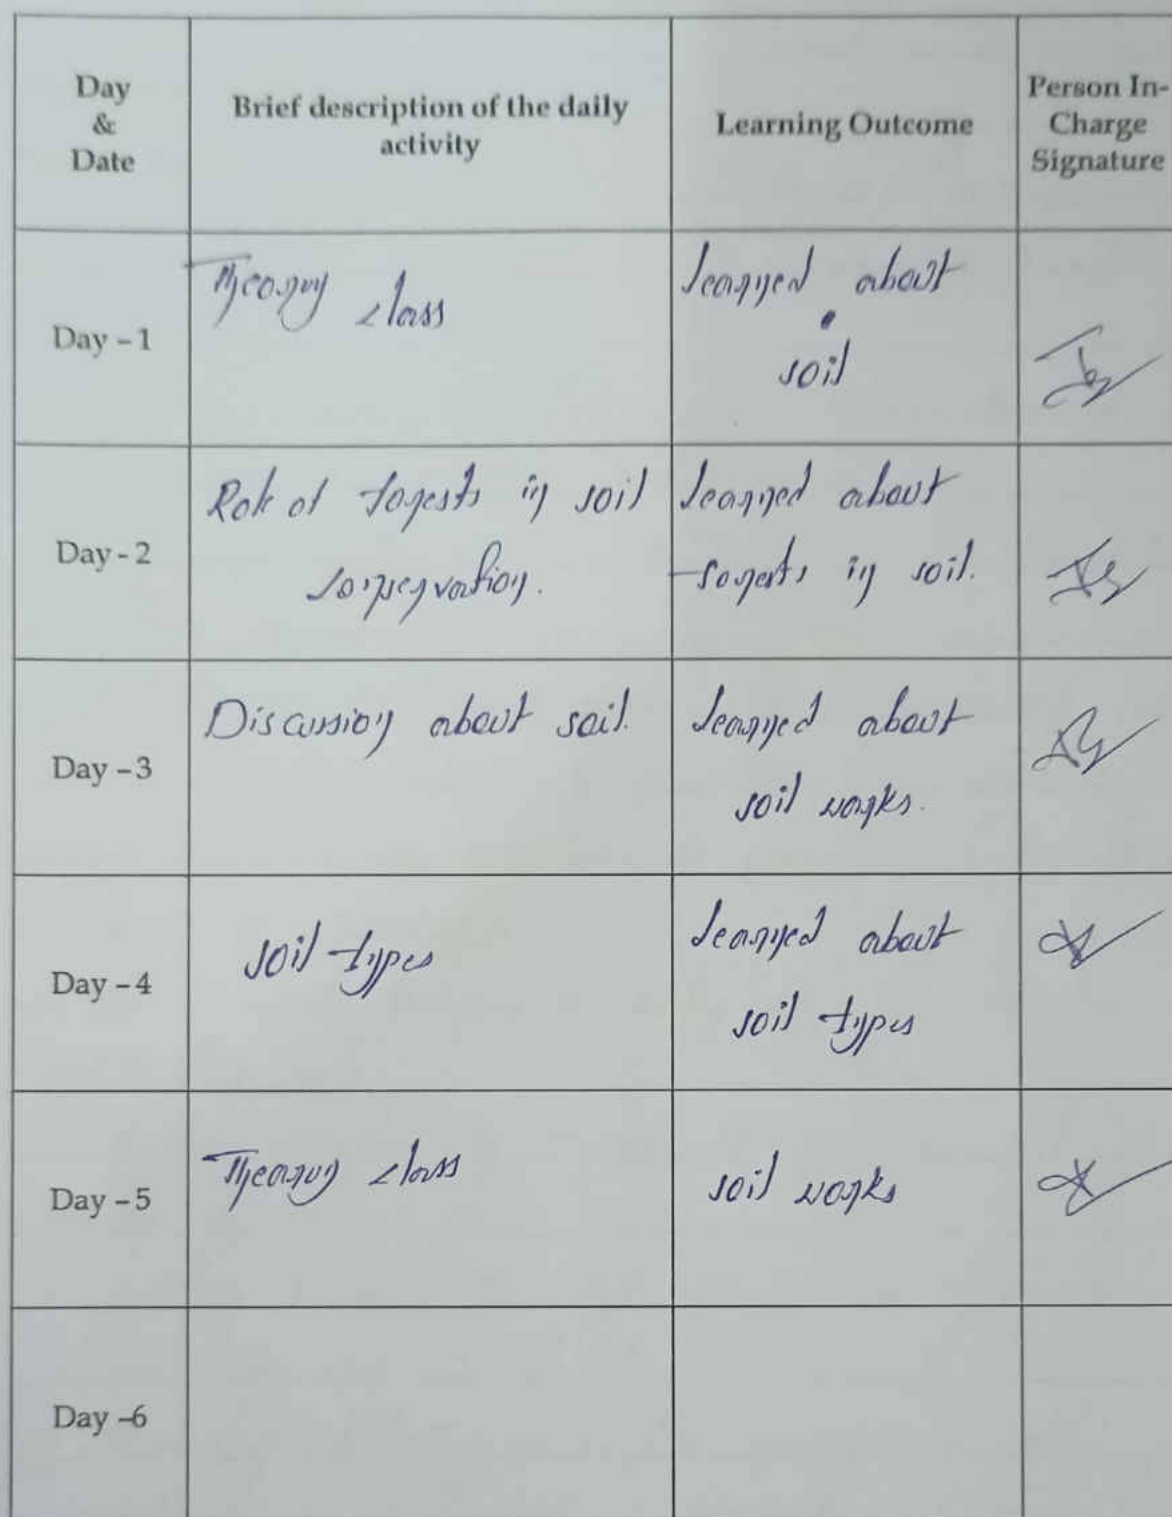 Day
&
Date
Brief description of the daily
activity
Learning Outcome
Person In-
Charge
Signature
Day - 1
Theory class
learned about
soil
Day - 2
Role of forests in soil
conservation.
learned about
forests in soil.
Day - 3
Discussion about soil.
learned about
soil works.
Day - 4
soil types
learned about
soil types
Day - 5
Theory class
soil works
Day -6